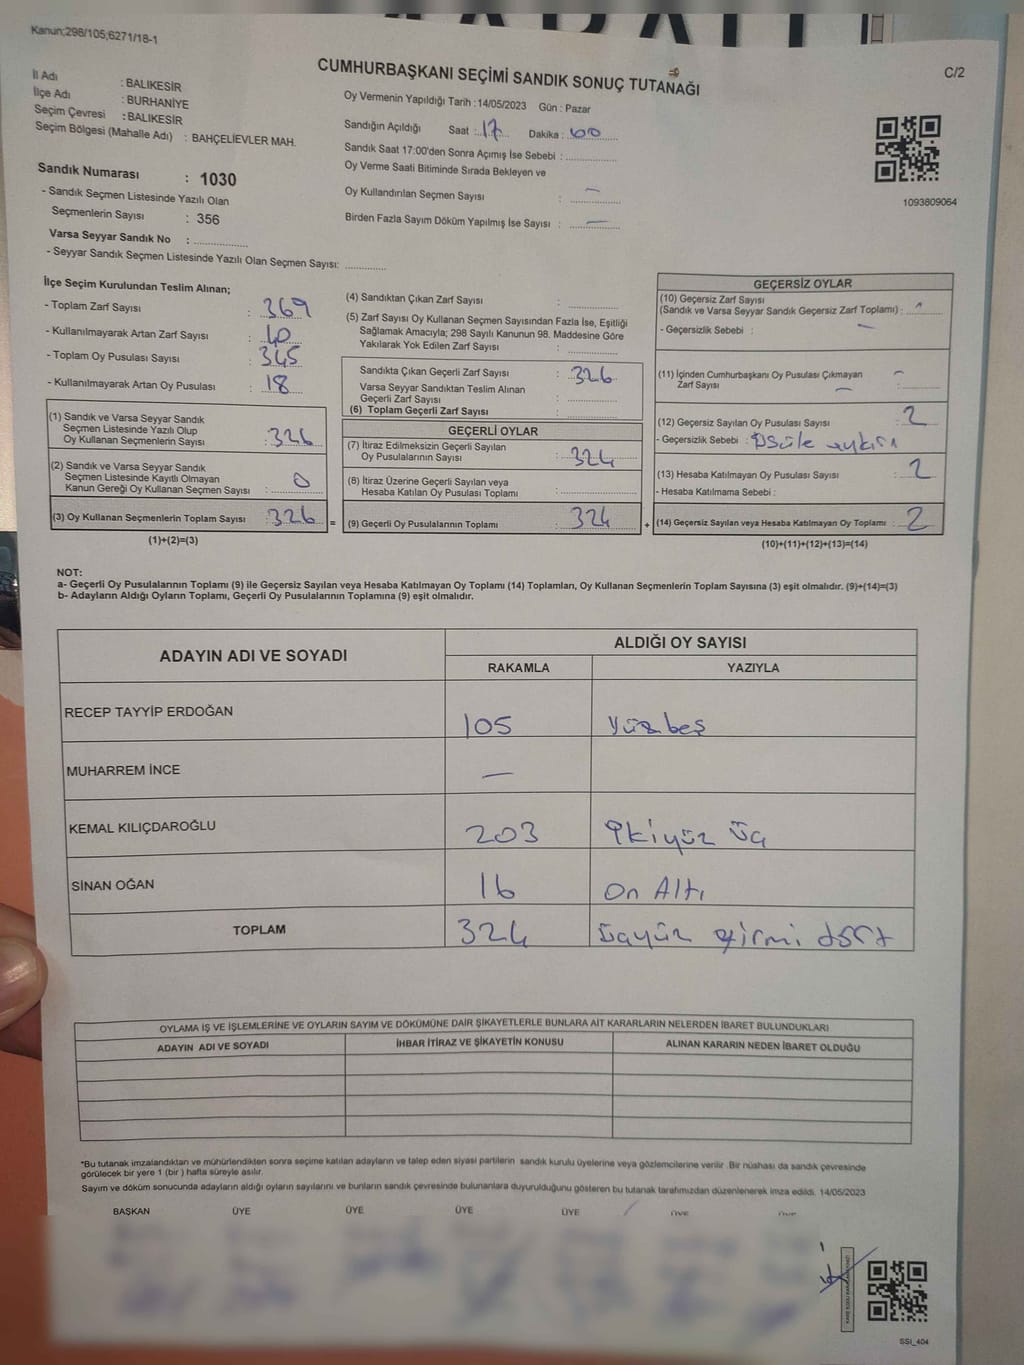 Kanun;298/105;6271/18-1
C/2
CUMHURBAŞKANI SEÇİMİ SANDIK SONUÇ TUTANAĞI
İl Adı : BALIKESİR
İlçe Adı : BURHANİYE
Seçim Çevresi : BALIKESİR
Seçim Bölgesi (Mahalle Adı) : BAHÇELİEVLER MAH.
Oy Vermenin Yapıldığı Tarih : 14/05/2023 Gün : Pazar
Sandığın Açıldığı Saat : 17 Dakika : 00
Sandık Saat 17:00'den Sonra Açımış İse Sebebi :
Oy Verme Saati Bitiminde Sırada Bekleyen ve
Oy Kullandırılan Seçmen Sayısı : —
Birden Fazla Sayım Döküm Yapılmış İse Sayısı : —
1093809064
Sandık Numarası : 1030
- Sandık Seçmen Listesinde Yazılı Olan
Seçmenlerin Sayısı : 356
Varsa Seyyar Sandık No :
- Seyyar Sandık Seçmen Listesinde Yazılı Olan Seçmen Sayısı:
İlçe Seçim Kurulundan Teslim Alınan;
- Toplam Zarf Sayısı : 369
- Kullanılmayarak Artan Zarf Sayısı : 40
- Toplam Oy Pusulası Sayısı : 345
- Kullanılmayarak Artan Oy Pusulası : 18
(1) Sandık ve Varsa Seyyar Sandık
Seçmen Listesinde Yazılı Olup
Oy Kullanan Seçmenlerin Sayısı : 326
(2) Sandık ve Varsa Seyyar Sandık
Seçmen Listesinde Kayıtlı Olmayan
Kanun Gereği Oy Kullanan Seçmen Sayısı : 0
(3) Oy Kullanan Seçmenlerin Toplam Sayısı : 326 =
(1)+(2)=(3)
(4) Sandıktan Çıkan Zarf Sayısı :
(5) Zarf Sayısı Oy Kullanan Seçmen Sayısından Fazla İse, Eşitliği
Sağlamak Amacıyla; 298 Sayılı Kanunun 98. Maddesine Göre
Yakılarak Yok Edilen Zarf Sayısı :
Sandıkta Çıkan Geçerli Zarf Sayısı : 326
Varsa Seyyar Sandıktan Teslim Alınan
Geçerli Zarf Sayısı :
(6) Toplam Geçerli Zarf Sayısı :
GEÇERLİ OYLAR
(7) İtiraz Edilmeksizin Geçerli Sayılan
Oy Pusulalarının Sayısı : 324
(8) İtiraz Üzerine Geçerli Sayılan veya
Hesaba Katılan Oy Pusulası Toplamı :
(9) Geçerli Oy Pusulalarının Toplamı : 324 +
GEÇERSİZ OYLAR
(10) Geçersiz Zarf Sayısı
(Sandık ve Varsa Seyyar Sandık Geçersiz Zarf Toplamı) :
- Geçersizlik Sebebi : —
(11) İçinden Cumhurbaşkanı Oy Pusulası Çıkmayan —
Zarf Sayısı — :
(12) Geçersiz Sayılan Oy Pusulası Sayısı : 2
- Geçersizlik Sebebi : usüle aykırı
(13) Hesaba Katılmayan Oy Pusulası Sayısı : 2
- Hesaba Katılmama Sebebi :
(14) Geçersiz Sayılan veya Hesaba Katılmayan Oy Toplamı : 2
(10)+(11)+(12)+(13)=(14)
NOT:
a- Geçerli Oy Pusulalarının Toplamı (9) ile Geçersiz Sayılan veya Hesaba Katılmayan Oy Toplamı (14) Toplamları, Oy Kullanan Seçmenlerin Toplam Sayısına (3) eşit olmalıdır. (9)+(14)=(3)
b- Adayların Aldığı Oyların Toplamı, Geçerli Oy Pusulalarının Toplamına (9) eşit olmalıdır.
ADAYIN ADI VE SOYADI
ALDIĞI OY SAYISI
RAKAMLA YAZIYLA
RECEP TAYYİP ERDOĞAN 105 Yüzbeş
MUHARREM İNCE —
KEMAL KILIÇDAROĞLU 203 ikiyüz üç
SİNAN OĞAN 16 On Altı
TOPLAM 324 üçyüz yirmi dört
OYLAMA İŞ VE İŞLEMLERİNE VE OYLARIN SAYIM VE DÖKÜMÜNE DAİR ŞİKAYETLERLE BUNLARA AİT KARARLARIN NELERDEN İBARET BULUNDUKLARI
ADAYIN ADI VE SOYADI İHBAR İTİRAZ VE ŞİKAYETİN KONUSU ALINAN KARARIN NEDEN İBARET OLDUĞU
*Bu tutanak imzalandıktan ve mühürlendikten sonra seçime katılan adayların ve talep eden siyasi partilerin sandık kurulu üyelerine veya gözlemcilerine verilir. Bir nüshası da sandık çevresinde
görülecek bir yere 1 (bir) hafta süreyle asılır.
Sayım ve döküm sonucunda adayların aldığı oyların sayılarını ve bunların sandık çevresinde bulunanlara duyurulduğunu gösteren bu tutanak tarafımızdan düzenlenerek imza edildi. 14/05/2023
BAŞKAN ÜYE ÜYE ÜYE ÜYE ÜYE ÜYE
SSI_404